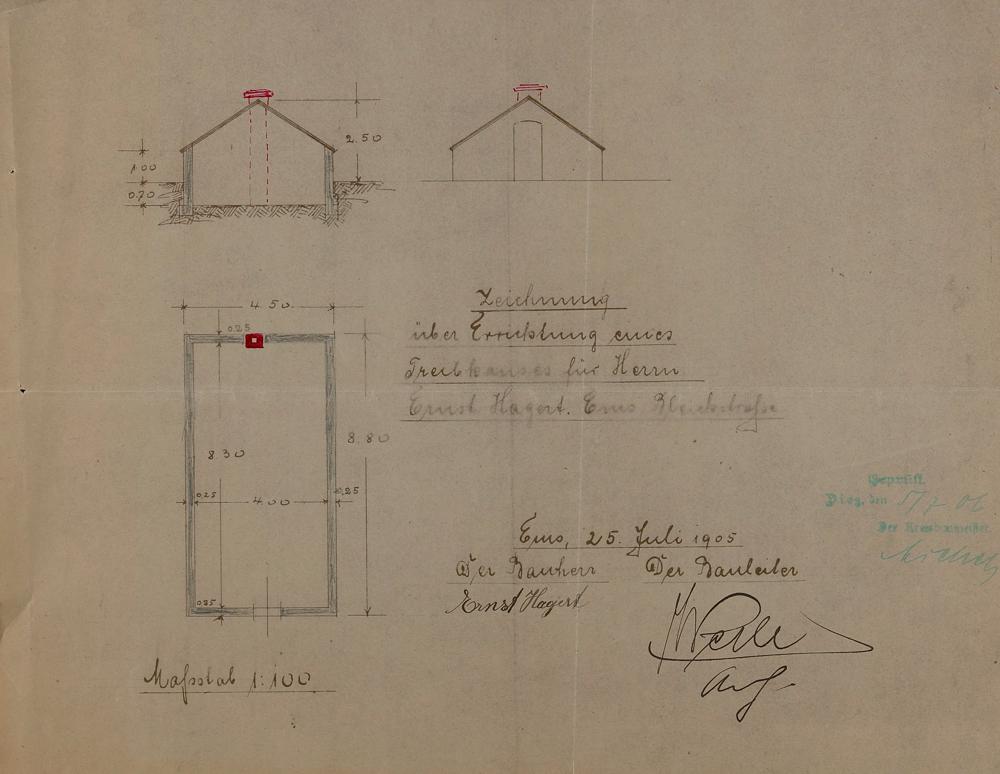 2.50
1.00
0.70
4.50.
0.25
Zeichnung
über Errichtung eines
Treibhauses für Herrn
Ernst Hagert. Ems Bleichstraße
8.80
8.30
0.25
4.00
0.25
Geprüft.
Diez, den 5/7 06.
Der Kreisbaumeister.
Ems, 25. Juli 1905
Der Bauherr Der Bauleiter
Ernst Hagert
0.25
Maßstab 1:100